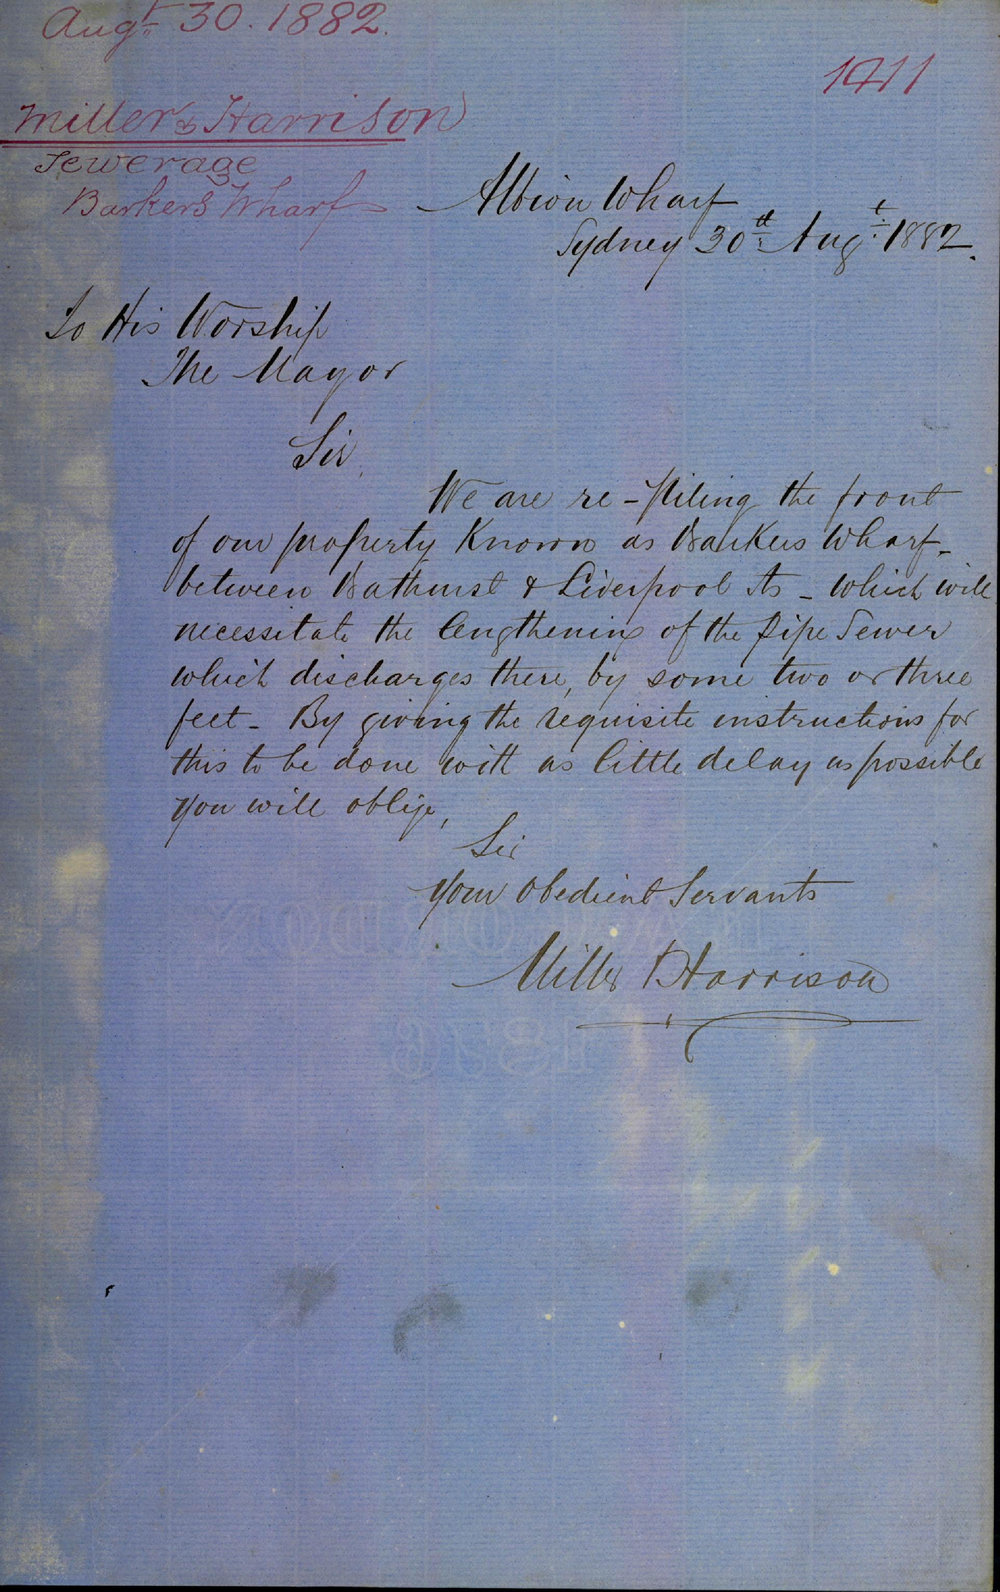 Augt. 30. 1882.
1911
Miller & Harrison
Sewerage
Barkers Wharf
Albion Wharf
Sydney 30th Augt. 1882.
To His Worship
The Mayor
Sir
We are re-piling the front
of our property Known as Barkers Wharf -
between Bathurst & Liverpool Sts - which will
necessitate the lengthening of the Pipe Sewer
which discharges there, by some two or three
feet - By giving the requisite instructions for
this to be done with as little delay as possible
you will oblige,
Sir
Your Obedient Servants
Miller & Harrison
1876